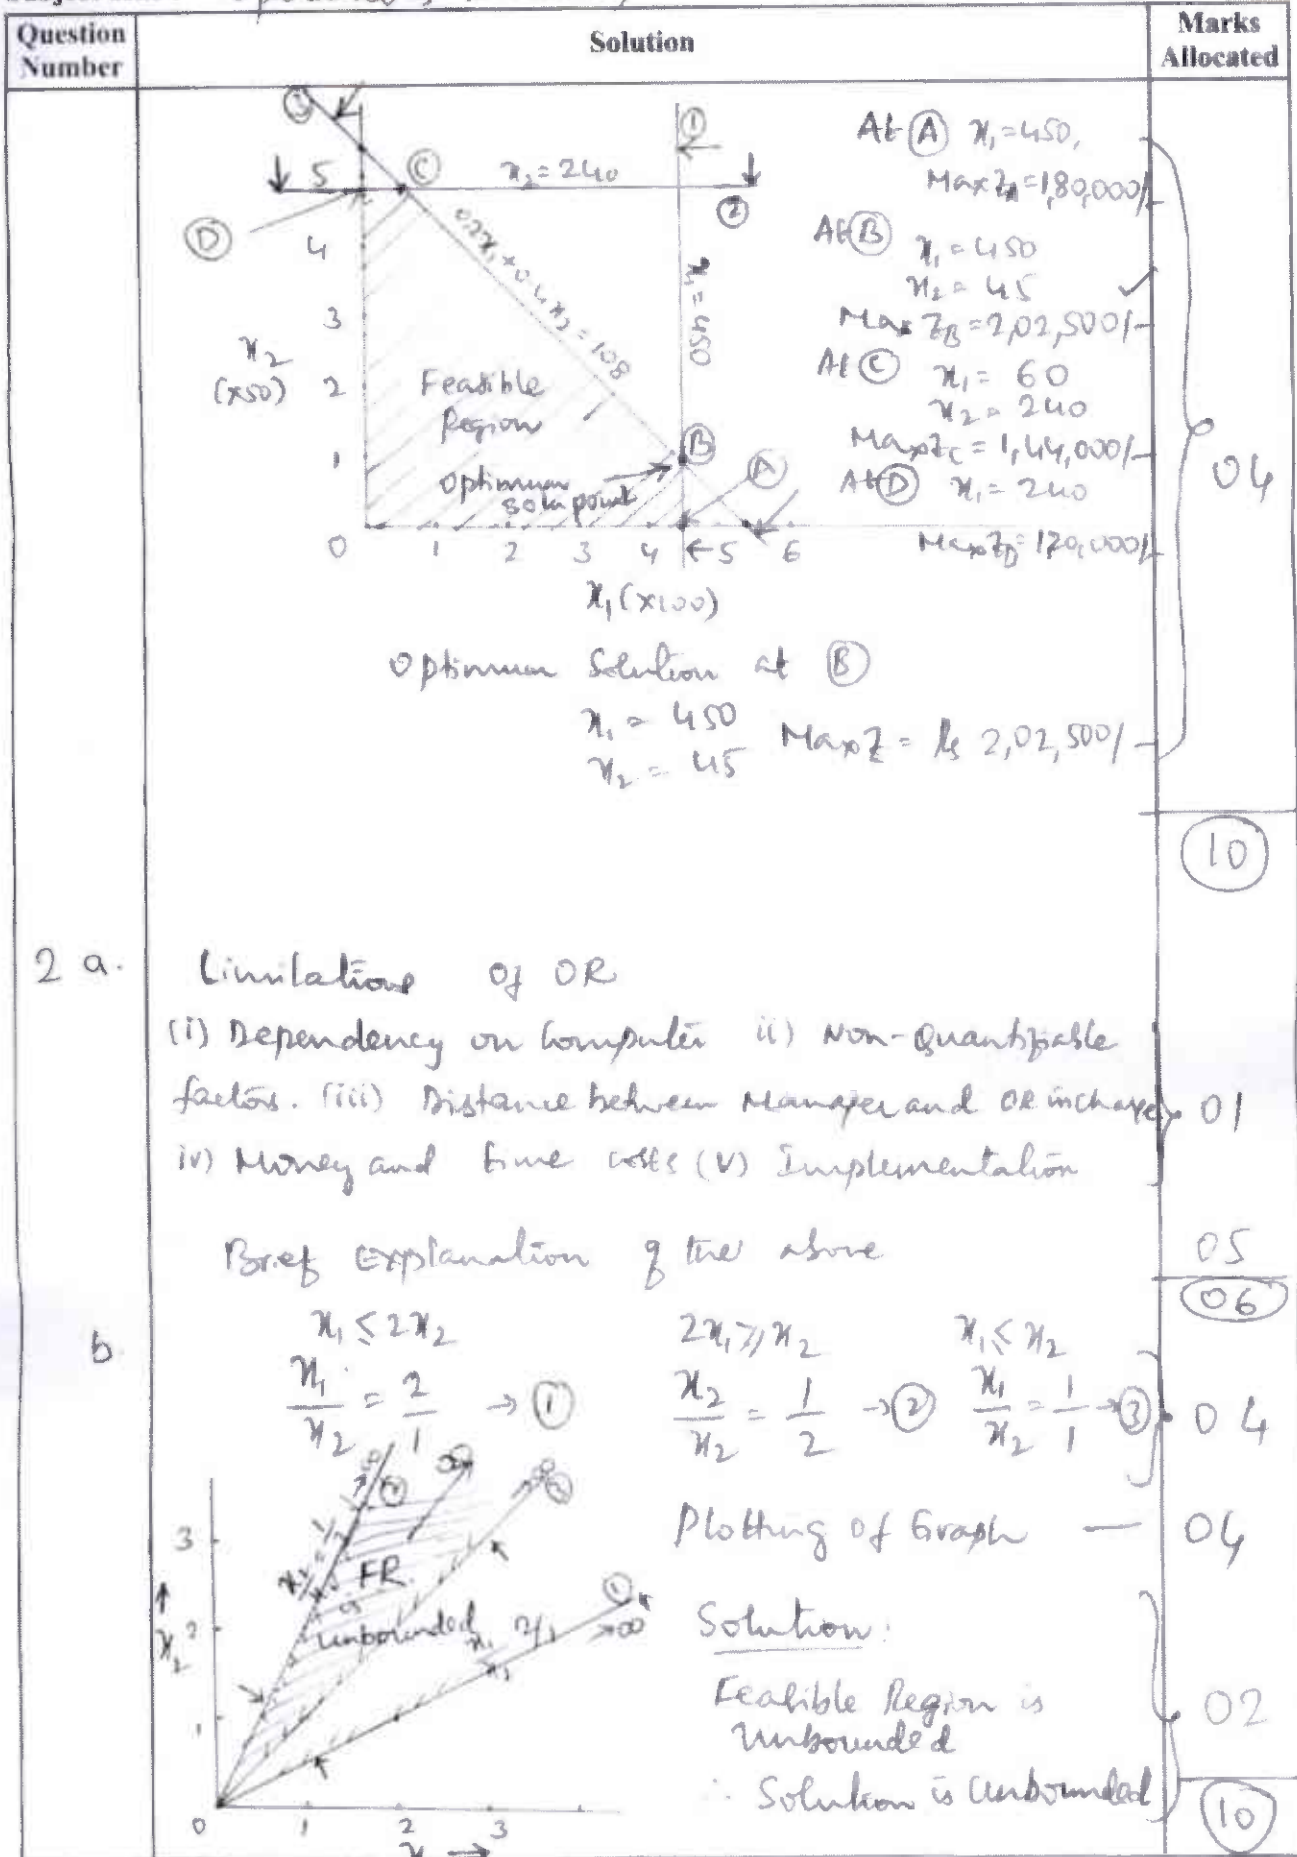 Question Number
Solution
Marks Allocated
3
5
C
x₂ = 240
1
2
D
4
3
2
1
0.2x₁ + 0.4x₂ = 108
x₁ = 450
x₂
(x50)
Feasible
Region
optimum
soln point
B
A
0 1 2 3 4 5 6
x₁ (x100)
At A x₁ = 450,
Max Z_A = 1,80,000/-
At B x₁ = 450
x₂ = 45
Max Z_B = 2,02,500/-
At C x₁ = 60
x₂ = 240
Max Z_C = 1,44,000/-
At D x₁ = 240
Max Z_D = 120,000/-
04
Optimum Solution at B
x₁ = 450
x₂ = 45 Max Z = Rs 2,02,500/-
10
2 a. Limitations Of OR
(i) Dependency on Computer ii) Non-Quantifiable
factors. (iii) Distance between Manager and OR incharge 01
iv) Money and time costs (v) Implementation
Brief Explanation of the above 05
06
b x₁ ≤ 2x₂ 2x₁ ≥ x₂ x₁ ≤ x₂
x₁/x₂ = 2/1 → 1 x₂/x₂ = 1/2 → 2 x₁/x₂ = 1/1 → 3 04
Plotting of Graph — 04
3
2
1
x₂
FR
is
unbounded
∞
1
0 1 2 3
Solution:
Feasible Region is
Unbounded
∴ Solution is Unbounded
02
10